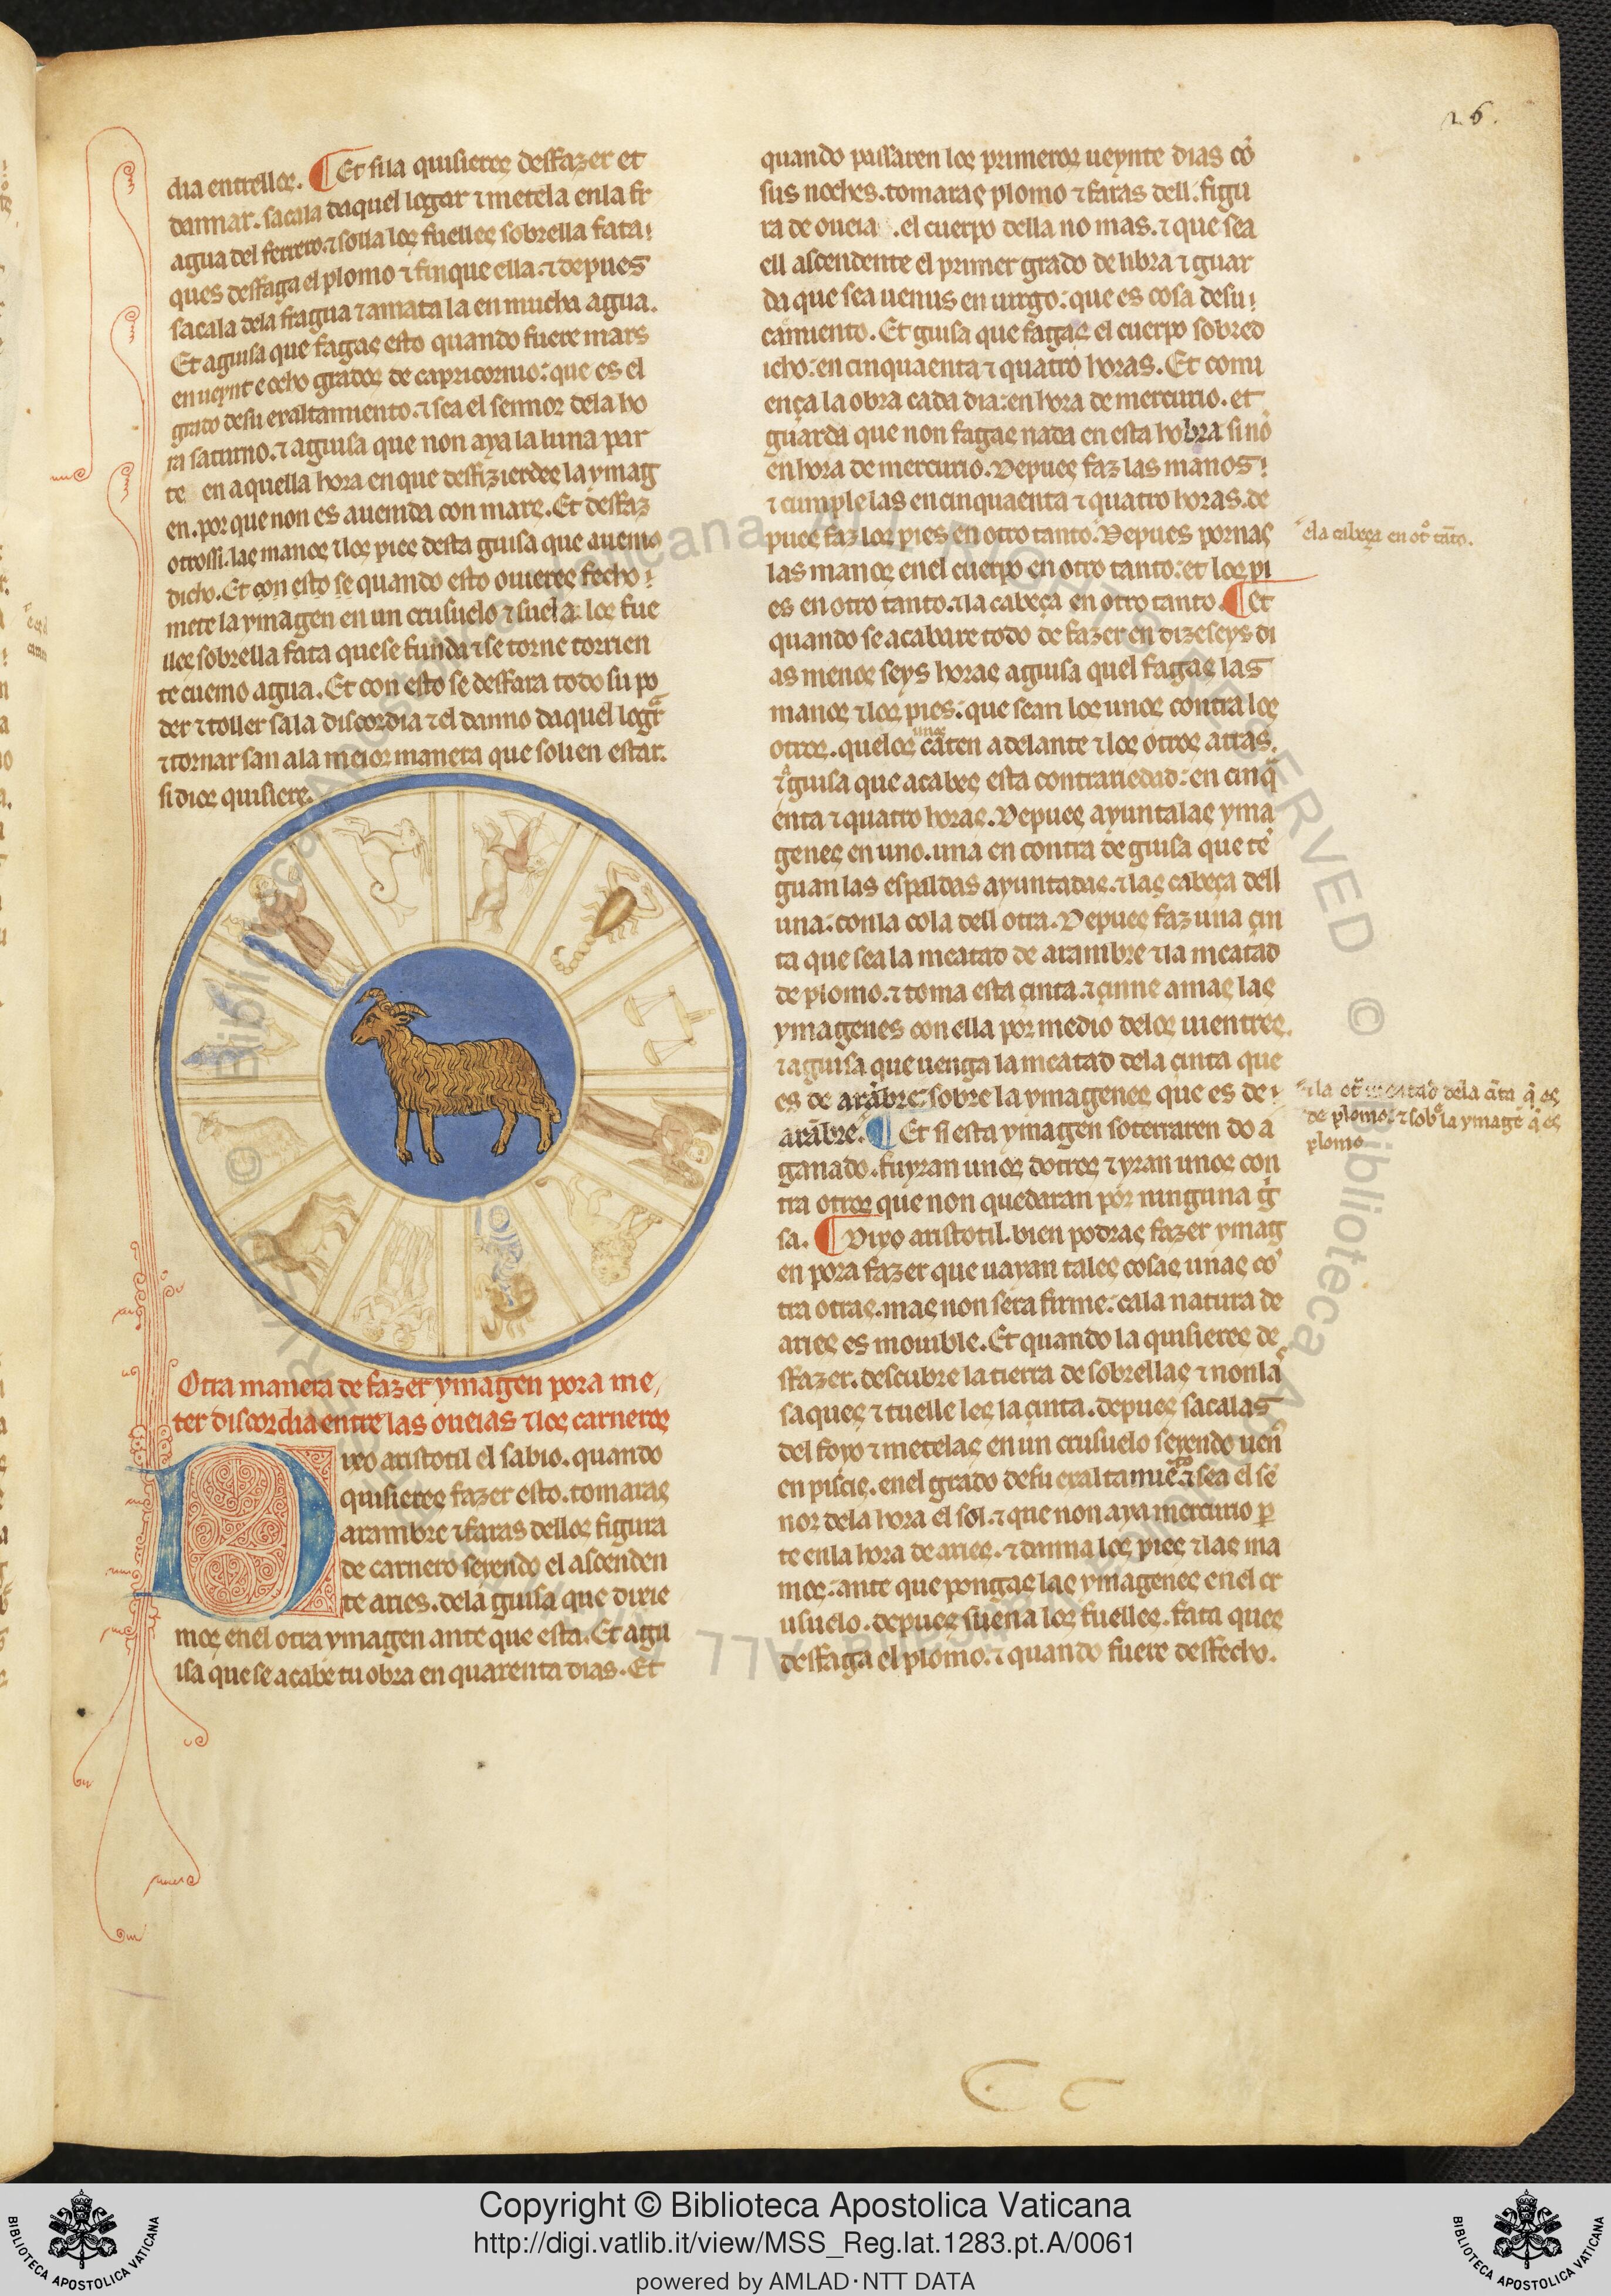 26.
dia entrelloς. Et si la quisiereς desfazer et
dannar. sacala daquel logar ⁊ metela en la fr
agua del ferrero. ⁊ solla loς fuelleς sobrella fata
ques desfaga el plomo ⁊ finque ella. ⁊ depues
sacala dela fragua ⁊ amata la en mucha agua.
Et aguisa que fagaς esto quando fuere mars
en ueynt e ocho gradoς de capricornio: que es el
grado de su exaltamiento. ⁊ sea el sennor dela ho
ra saturno. ⁊ aguisa que non aya la luna par
te en aquella hora en que desfizierdeς la ymag
en. por que non es auenida con marς. Et desfaz
otrossi. laς manoς ⁊ loς pieς desta guisa que auemos
dicho. Et con esto se quando esto ouiereς fecho
mete la ymagen en un crusuelo ⁊ suela loς fue
lleς sobrella fata que se funda ⁊ se torne corrien
te cuemo agua. Et con esto se desfara todo su po
der ⁊ toller sa la discordia ⁊ el danno daquel logar
⁊ tornar san a la meior manera que solien estar.
si dioς quisiere.
Otra manera de fazer ymagen pora me
ter discordia entre las oueias ⁊ loς carneroς
Dixo aristotil el sabio. quando
quisiereς fazer esto. tomaraς
arambre ⁊ faras delloς figura
de carnero seyendo el ascenden
te aries. dela guisa que dixie
moς en el otra ymagen ante que esta. Et agu
isa que se acabe tu obra en quarenta dias. Et
quando passaren loς primeros ueynte dias cō
sus noches. tomaraς plomo ⁊ faras dell. figu
ra de oueia. el cuerpo della no mas. ⁊ que sea
ell ascendente el primer grado de libra ⁊ guar
da que sea uenus en uirgo: que es cosa de su
camiento. Et guisa que fagaς el cuerpo sobred
icho: en cinquaenta ⁊ quatro horas. Et comi
ença la obra cada dia: en hora de mercurio. et
guarda que non fagaς nada en esta hobra sinō
en hora de mercurio. Depueς faz las manos
⁊ cumple las en cinquaenta ⁊ quatro horas. de
pueς faz los pies en otro tanto. Depues pornaς
las manoς en el cuerpo en otro tanto: et los pi
es en otro tanto. ⁊ la cabeça en otro tanto. Et
quando se acabare todo de fazer en dizeseys di
as menoς seys horaς aguisa quel fagaς las
manoς ⁊ los pies: que sean loς unoς contra loς
otroς. que los unos caten adelante ⁊ loς otroς atras.
⁊ guisa que acabeς esta contrariedad: en cinq̄
enta ⁊ quatro horaς. Depueς ayunta laς yma
geneς en uno. una en contra de guisa que tē
guan las espaldas ayuntadaς. ⁊ laς cabeça dell
una: con la cola dell otra. Depueς faz una çin
ta que sea la meatad de arambre ⁊ la meatad
de plomo. ⁊ toma esta çinta. ⁊ çinne amaς laς
ymagenes con ella por medio deloς uientreς.
⁊ aguisa que uenga la meatad dela çinta que
es de arābre: sobre la ymageneς que es de
arābre. Et si esta ymagen soterraren do a
ganado. fuyran unoς dotroς ⁊ yran unoς con
tra otros que non quedaran por ninguna g̃
sa. Dixo aristotil. bien podraς fazer ymag
en pora fazer que uayan taleς cosaς unaς cō
tra otraς. maς non sera firme: ca la natura de
arieς es mouible. Et quando la quisiereς de
sfazer. descubre la tierra de sobrellaς ⁊ non la
saqueς ⁊ tuelle leς la çinta. depueς sacalas
del foyo ⁊ metelaς en un crusuelo seyendo uen
en pisciς. en el grado de su exaltamiento ⁊ sea el sē
nor dela hora el sol. ⁊ que non aya mercurio ꝑ
te en la hora de arieς. ⁊ danna los pieς ⁊ laς ma
noς: ante que pongaς laς ymageneς en el cr
usuelo. depueς suena los fuelleς. fata queς
desfaga el plomo. ⁊ quando fuere desfecho.
ela cabeça en otͦ tāto.
⁊ la ot̃ meatad dela çīta q̄ eς
de plomo: ⁊ sob̄ la ymagē q̄ eς
plomo
Copyright © Biblioteca Apostolica Vaticana
http://digi.vatlib.it/view/MSS_Reg.lat.1283.pt.A/0061
powered by AMLAD·NTT DATA
BIBLIOTECA APOSTOLICA VATICANA
BIBLIOTECA APOSTOLICA VATICANA